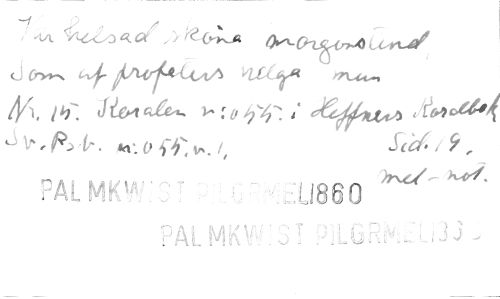 Var helsad sköna morgonstund,
Som af profeters helga mun
Nr. 15. Koralen n:o 55. i Hæffners Koralbok
Sv. Ps.b. n:o 55. v. 1. Sid. 19.
mel-not.
PALMKWIST PILGRMEL1860
PALMKWIST PILGRMEL1860